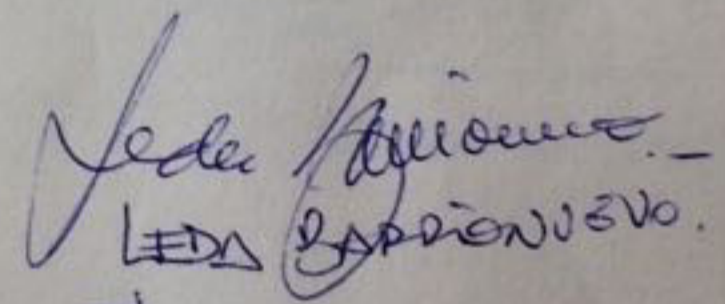 Leda Barrionuevo.-
LEDA BARRIONUEVO.